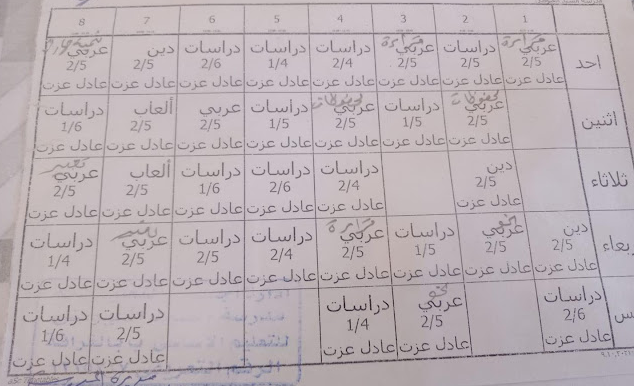 8 7 6 5 4 3 2 1
احد
عربي قراءة
2/5
عادل عزت
دراسات
2/5
عادل عزت
عربي قراءة
2/5
عادل عزت
دراسات
2/4
عادل عزت
دراسات
1/4
عادل عزت
دراسات
2/6
عادل عزت
دين
2/5
عادل عزت
عربي
2/5
عادل عزت
اثنين
عربي
2/5
عادل عزت
دراسات
1/5
عادل عزت
عربي
2/5
عادل عزت
دراسات
1/5
عادل عزت
عربي
2/5
عادل عزت
ألعاب
2/5
عادل عزت
دراسات
1/6
عادل عزت
ثلاثاء
دين
2/5
عادل عزت
دراسات
2/4
عادل عزت
دراسات
2/6
عادل عزت
دراسات
1/6
عادل عزت
ألعاب
2/5
عادل عزت
عربي تعبير
2/5
عادل عزت
بعاء
دين
2/5
عادل عزت
عربي نحو
2/5
عادل عزت
دراسات
1/5
عادل عزت
عربي قراءة
2/5
عادل عزت
دراسات
2/4
عادل عزت
دراسات
2/5
عادل عزت
عربي تعبير
2/5
عادل عزت
دراسات
1/4
عادل عزت
س
دراسات
2/6
عادل عزت
عربي نحو
2/5
عادل عزت
دراسات
1/4
عادل عزت
دراسات
2/5
عادل عزت
دراسات
1/6
عادل عزت